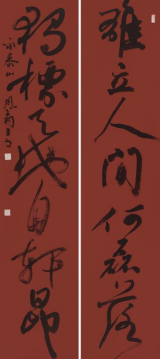 雄立人間何磊落
獨標天地自軒昂